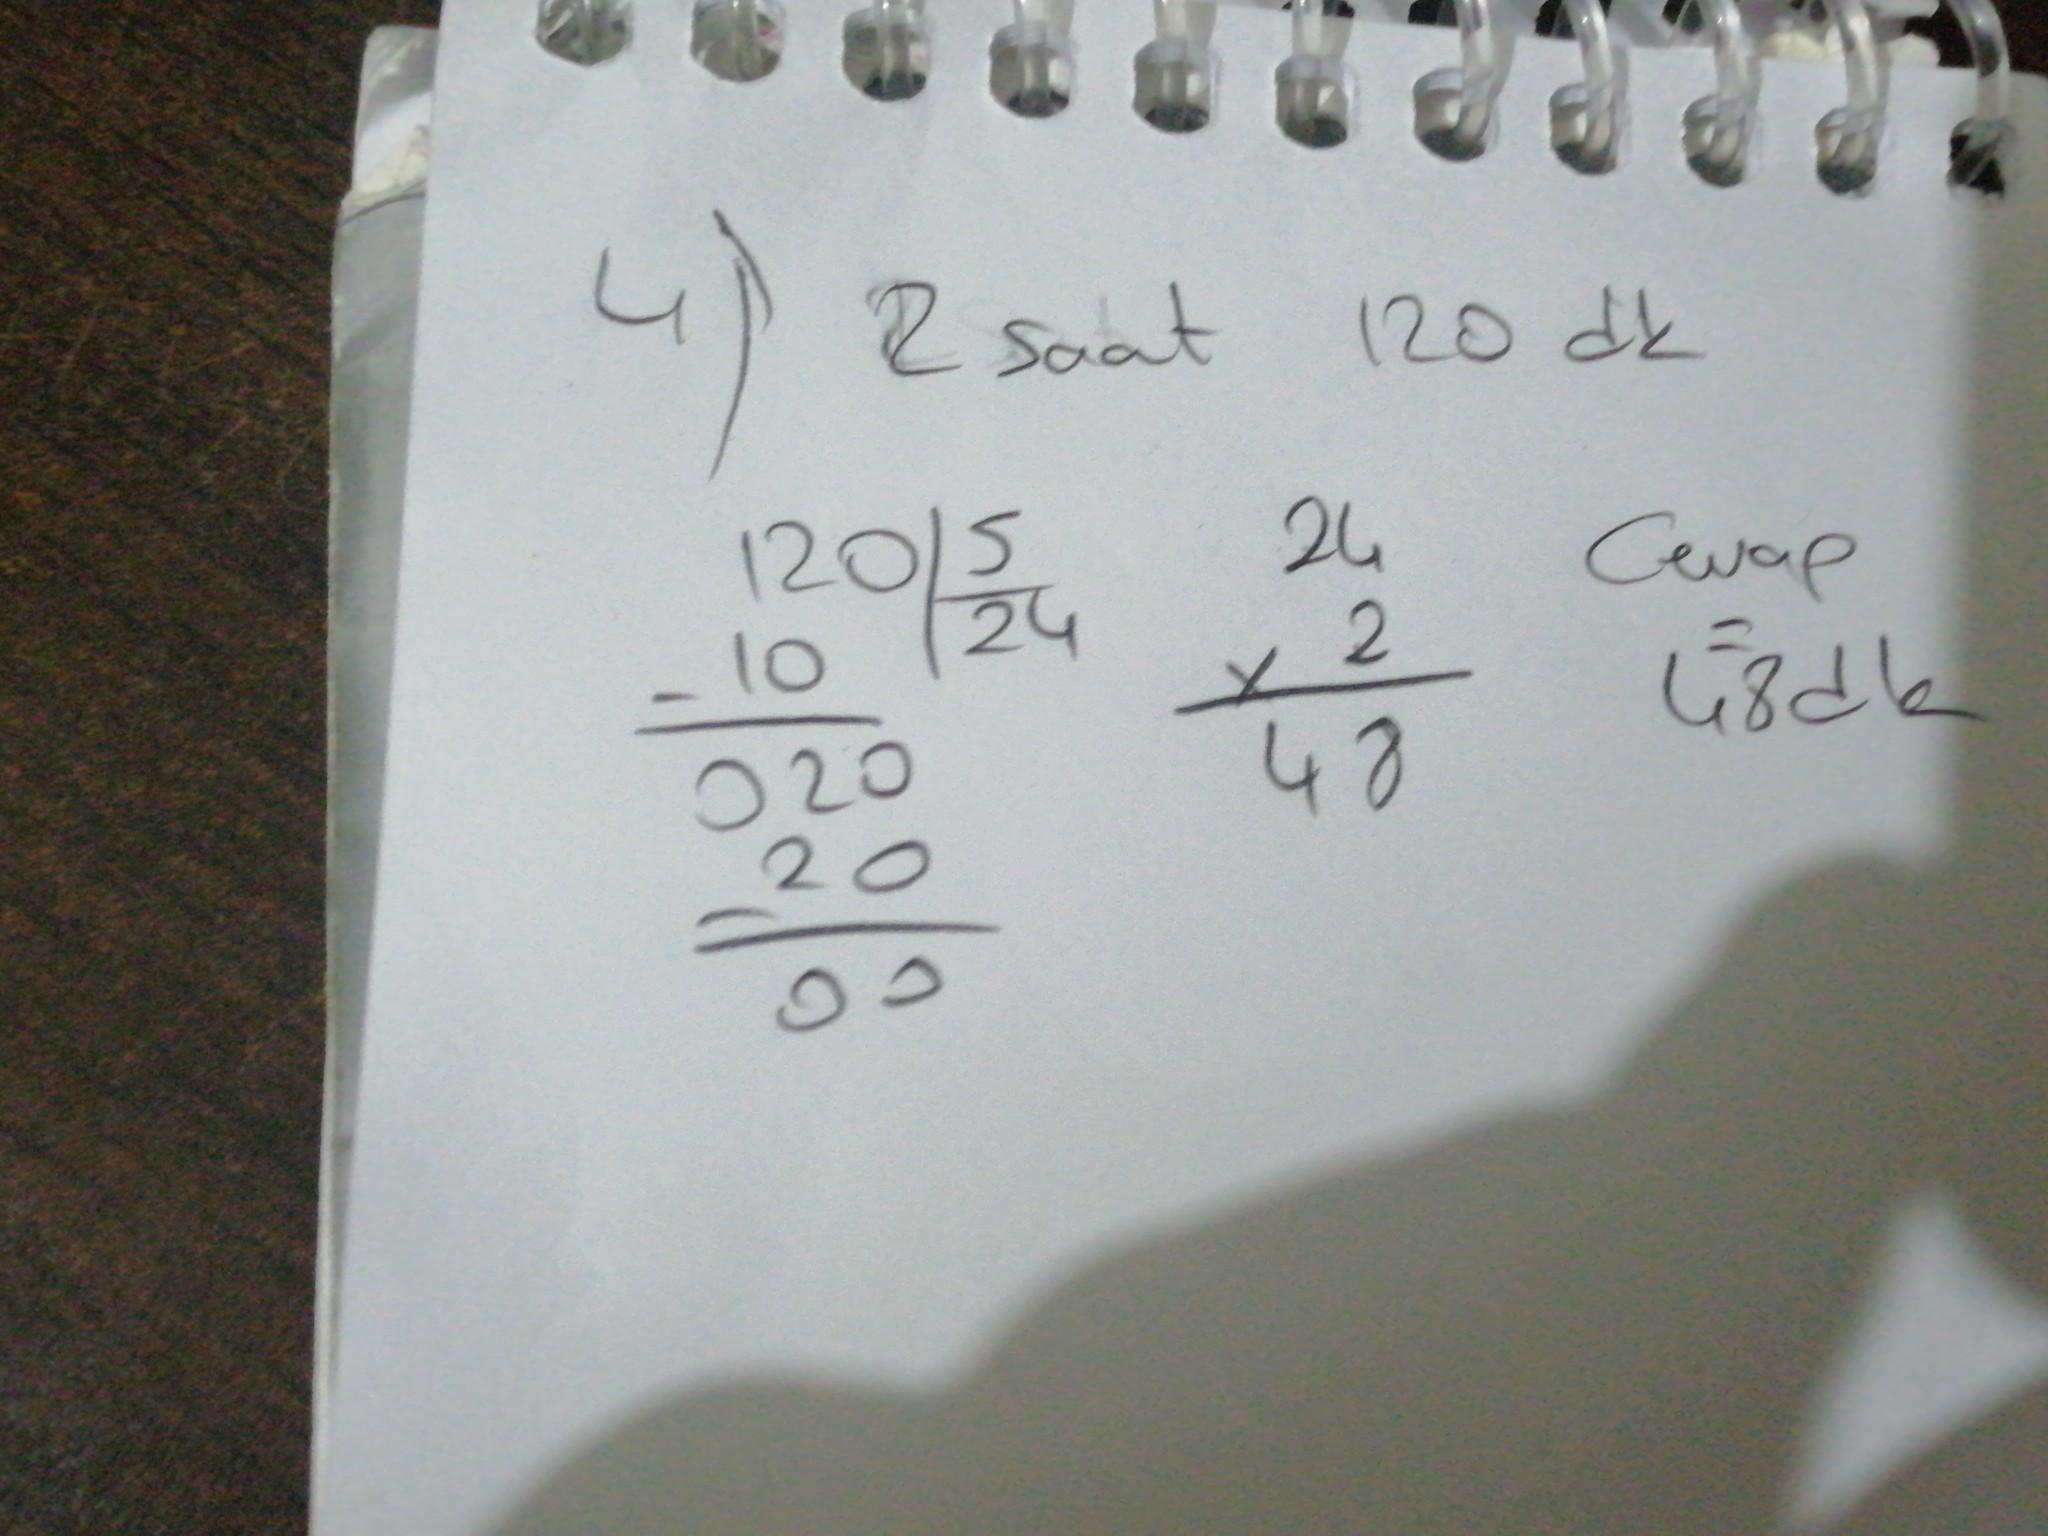 4) 2 saat 120 dk
120 | 5 24 Cevap
- 10 24 x 2 =
020 48 48 dk
- 20
00